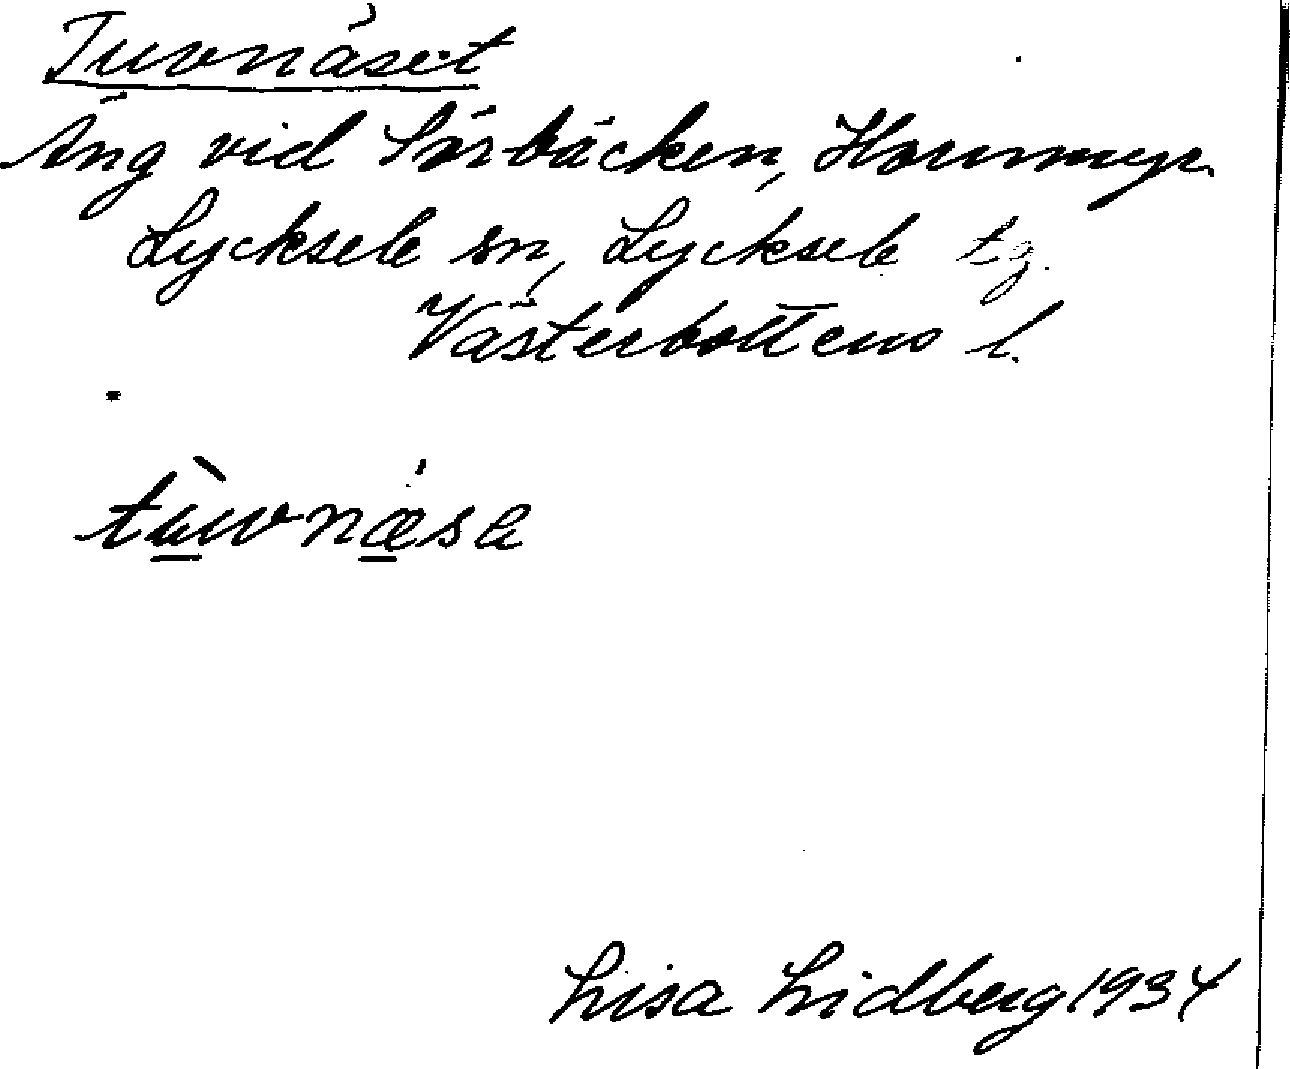 Tuvnäset
Äng vid Sörbäcken, Hornmyr.
Lycksele sn, Lycksele tg.
Västerbottens l.
tùvnæsa
Lisa Lidberg 1934